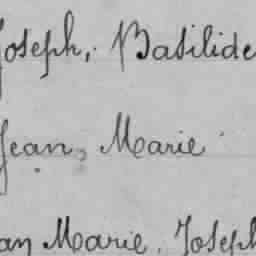 Joseph, Basilide
Jean, Marie
an Marie, Joseph